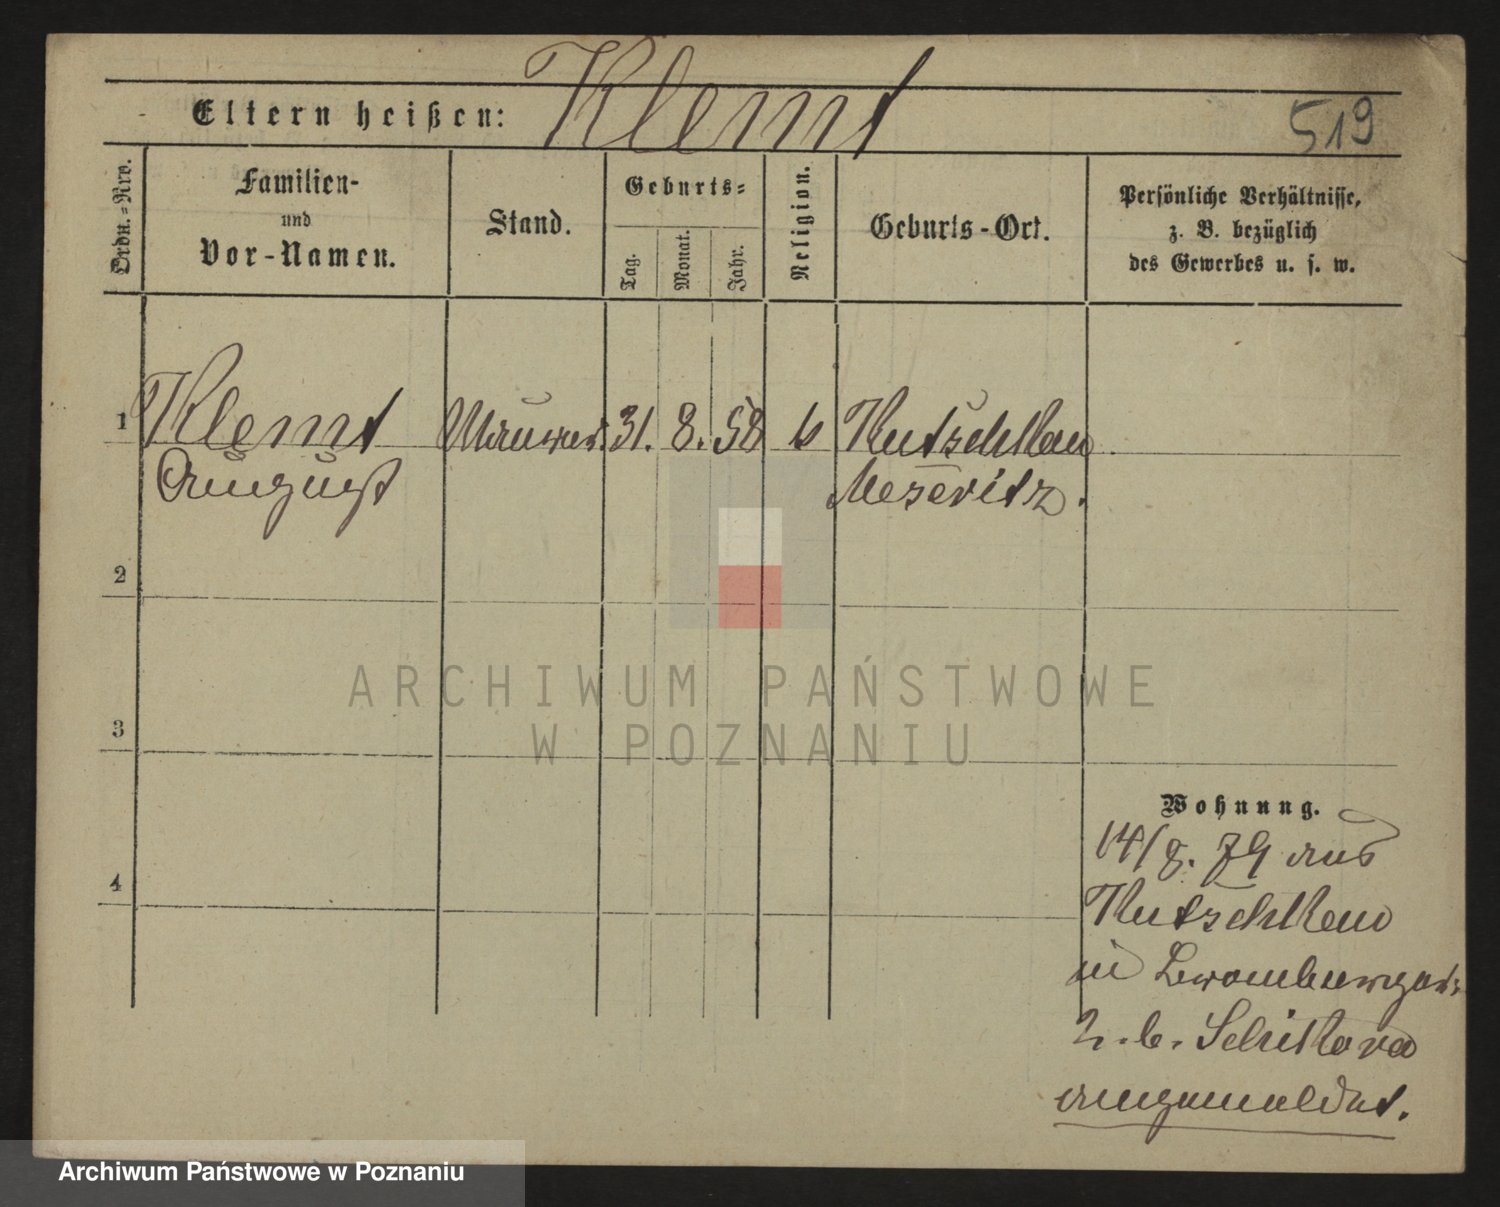 Eltern heißen: Klemt
519
Ordn.=Nro.
Familien-
und
Vor-Namen.
Stand.
Geburts=
Tag.
Monat.
Jahr.
Religion.
Geburts-Ort.
Persönliche Verhältnisse,
z. B. bezüglich
des Gewerbes u. s. w.
1 Klemt Maurer. 31. 8. 58 Kutschkau
August Meseritz.
2
3
4
ARCHIWUM PAŃSTWOWE
W POZNANIU
Wohnung.
14/8. 79 aus
Kutschkau
in
2. b.
angemeldet.
Archiwum Państwowe w Poznaniu